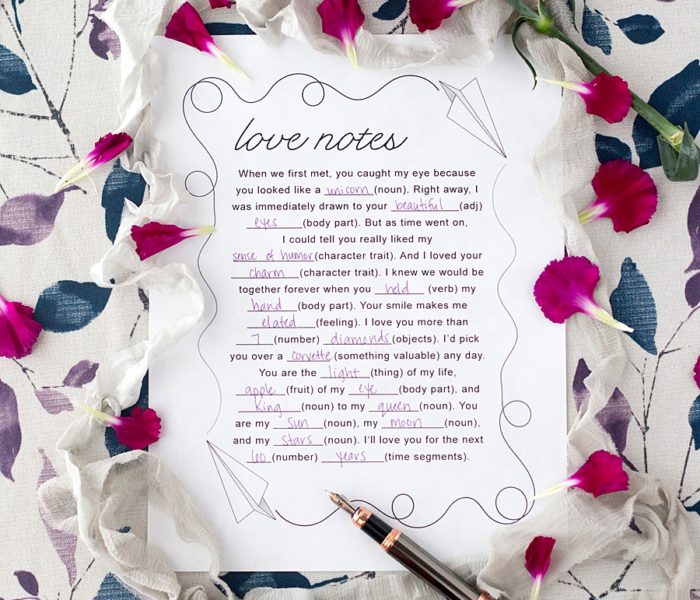 love notes
When we first met, you caught my eye because
you looked like a unicorn (noun). Right away, I
was immediately drawn to your beautiful (adj)
eyes (body part). But as time went on,
I could tell you really liked my
sense of humor (character trait). And I loved your
charm (character trait). I knew we would be
together forever when you held (verb) my
hand (body part). Your smile makes me
elated (feeling). I love you more than
7 (number) diamonds (objects). I'd pick
you over a corvette (something valuable) any day.
You are the light (thing) of my life,
apple (fruit) of my eye (body part), and
King (noun) to my queen (noun). You
are my sun (noun), my moon (noun),
and my stars (noun). I'll love you for the next
60 (number) years (time segments).